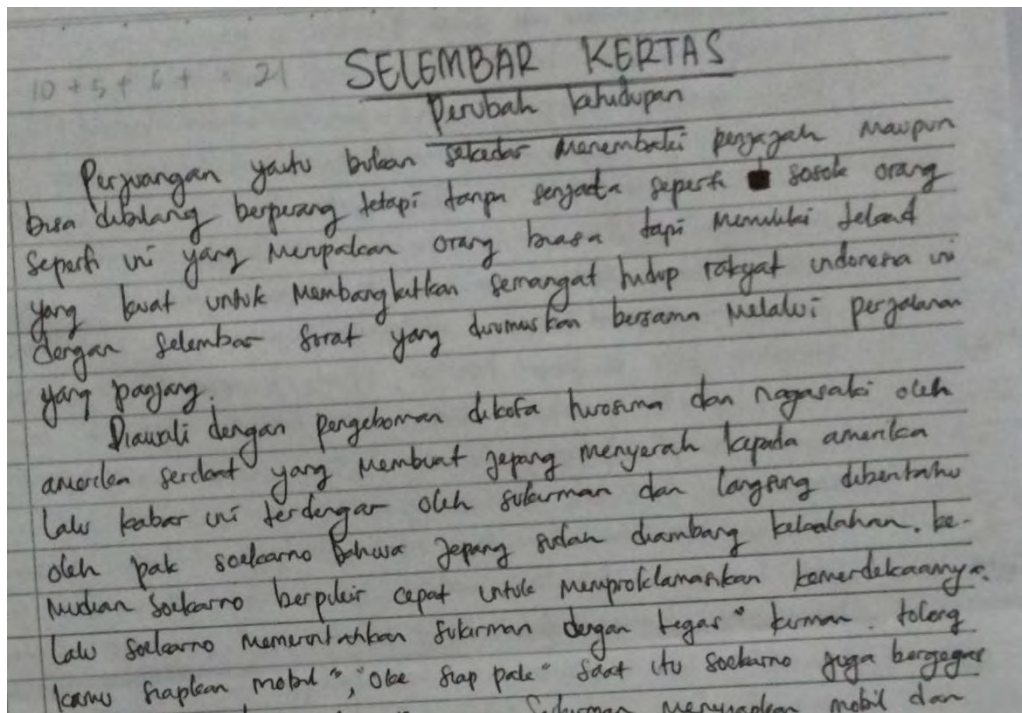 10 + 5 + 6 + = 21
SELEMBAR KERTAS
Perubah kehidupan
Perjuangan yaitu bukan sekedar menembaki penjajah maupun
bisa dibilang berperang tetapi tanpa senjata seperti sosok orang
seperti ini yang merupakan orang biasa tapi memiliki tekad
yang kuat untuk membangkitkan semangat hidup rakyat indonesia ini
dengan selembar surat yang dirumuskan bersama melalui perjalanan
yang panjang.
Diawali dengan pengeboman dikota hirosima dan nagasaki oleh
amerika serikat yang membuat jepang menyerah kepada amerika
lalu kabar ini terdengar oleh sukirman dan langsung diberitahu
oleh pak soekarno bahwa jepang sudah diambang kekalahan. ke-
mudian soekarno berpikir cepat untuk memproklamasikan kemerdekaannya.
lalu soekarno memerintahkan sukirman dengan tegas " kirman. tolong
kamu siapkan mobil ", "oke siap pak" saat itu soekarno juga bergegas
Sukirman menyiapkan mobil dan